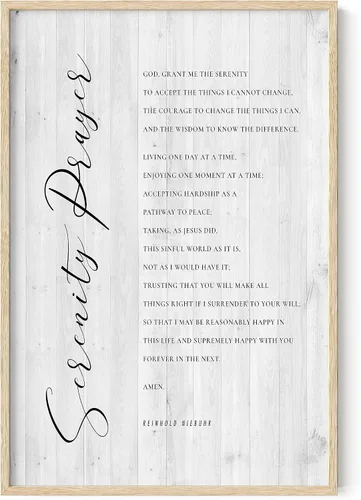 Serenity Prayer
GOD, GRANT ME THE SERENITY
TO ACCEPT THE THINGS I CANNOT CHANGE,
THE COURAGE TO CHANGE THE THINGS I CAN,
AND THE WISDOM TO KNOW THE DIFFERENCE.
LIVING ONE DAY AT A TIME,
ENJOYING ONE MOMENT AT A TIME;
ACCEPTING HARDSHIP AS A
PATHWAY TO PEACE;
TAKING, AS JESUS DID,
THIS SINFUL WORLD AS IT IS,
NOT AS I WOULD HAVE IT;
TRUSTING THAT YOU WILL MAKE ALL
THINGS RIGHT IF I SURRENDER TO YOUR WILL;
SO THAT I MAY BE REASONABLY HAPPY IN
THIS LIFE AND SUPREMELY HAPPY WITH YOU
FOREVER IN THE NEXT.
AMEN.
REINHOLD NIEBUHR